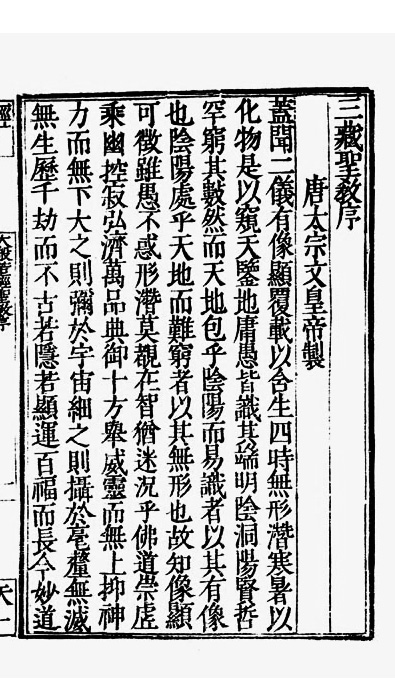 三藏聖敎序
唐太宗文皇帝製
蓋聞二儀有像顯覆載以含生四時無形潛寒暑以
化物是以窺天鑒地庸愚皆識其端明陰洞陽賢哲
罕窮其數然而天地包乎陰陽而易識者以其有像
也陰陽處乎天地而難窮者以其無形也故知像顯
可徵雖愚不惑形潛莫覩在智猶迷況乎佛道崇虛
乘幽控寂弘濟萬品典御十方舉威靈而無上抑神
力而無下大之則彌於宇宙細之則攝於毫釐無滅
無生歷千劫而不古若隱若顯運百福而長今妙道